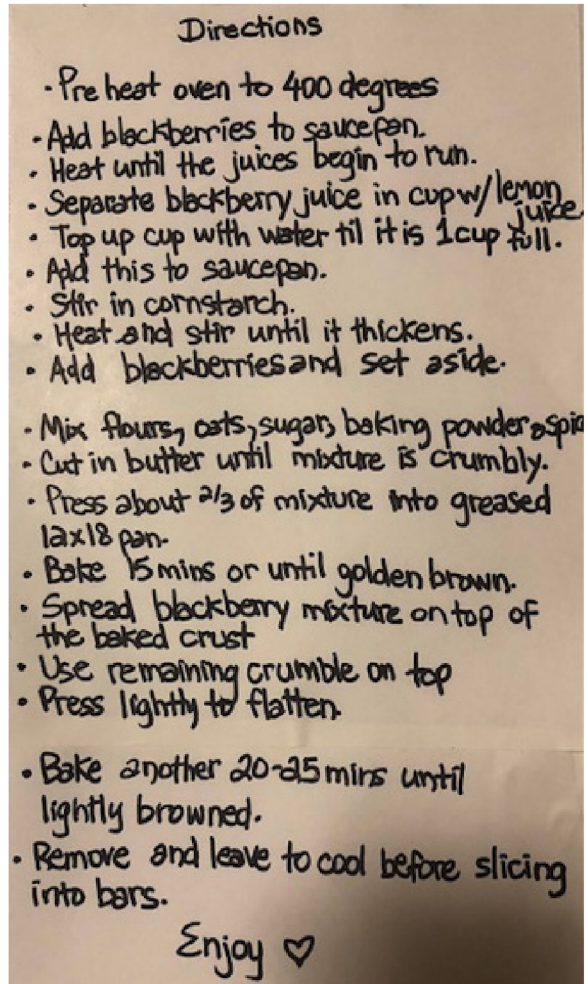 Directions
• Preheat oven to 400 degrees
• Add blackberries to saucepan.
• Heat until the juices begin to run.
• Separate blackberry juice in cup w/ lemon
juice
• Top up cup with water til it is 1 cup full.
• Add this to saucepan.
• Stir in cornstarch.
• Heat and stir until it thickens.
• Add blackberries and set aside.
• Mix flours, oats, sugar, baking powder,
• Cut in butter until mixture is crumbly.
• Press about 2/3 of mixture into greased
12x18 pan.
• Bake 15 mins or until golden brown.
• Spread blackberry mixture on top of
the baked crust
• Use remaining crumble on top
• Press lightly to flatten.
• Bake another 20-25 mins until
lightly browned.
• Remove and leave to cool before slicing
into bars.
Enjoy ♡